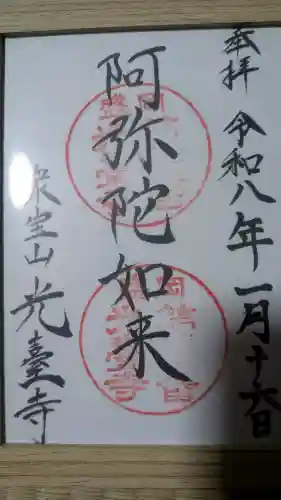 奉拝 令和八年一月十六日
阿弥陀如来
宝山 光臺寺